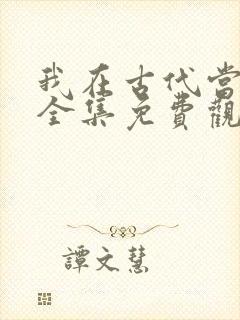 我在古代当
全集免費觀
譚文慧